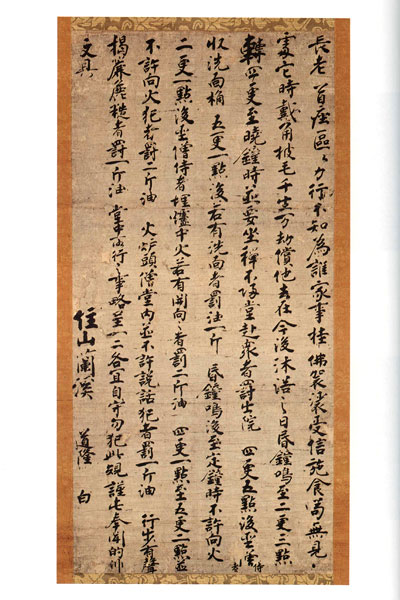 長老首座區々力行不知為誰家事掛佛袈裟受信施食苟無見
處它時戴角披毛千生万劫償他去在今後沐浴之日昏鐘鳴至二更三點
轉四更至曉鐘時並要坐禅不歸堂赴衆者罰出院 四更五點後聖僧侍者
収洗面桶 五更一點後若有洗面者罰油一斤 昏鐘鳴後至定鐘時不許向火
二更一點後聖僧侍者埋爐中火若有開向々者罰二斤油 四更一點至五更二點並
不許向火犯者罰二斤油 火炉頭僧堂内並不許説話犯者罰一斤油 行歩有聲
揭簾麤糙者罰一斤油 堂中所行之事略呈一二各宜自守勿犯此規謹此奉聞的非
文具
住山蘭溪 道隆 白